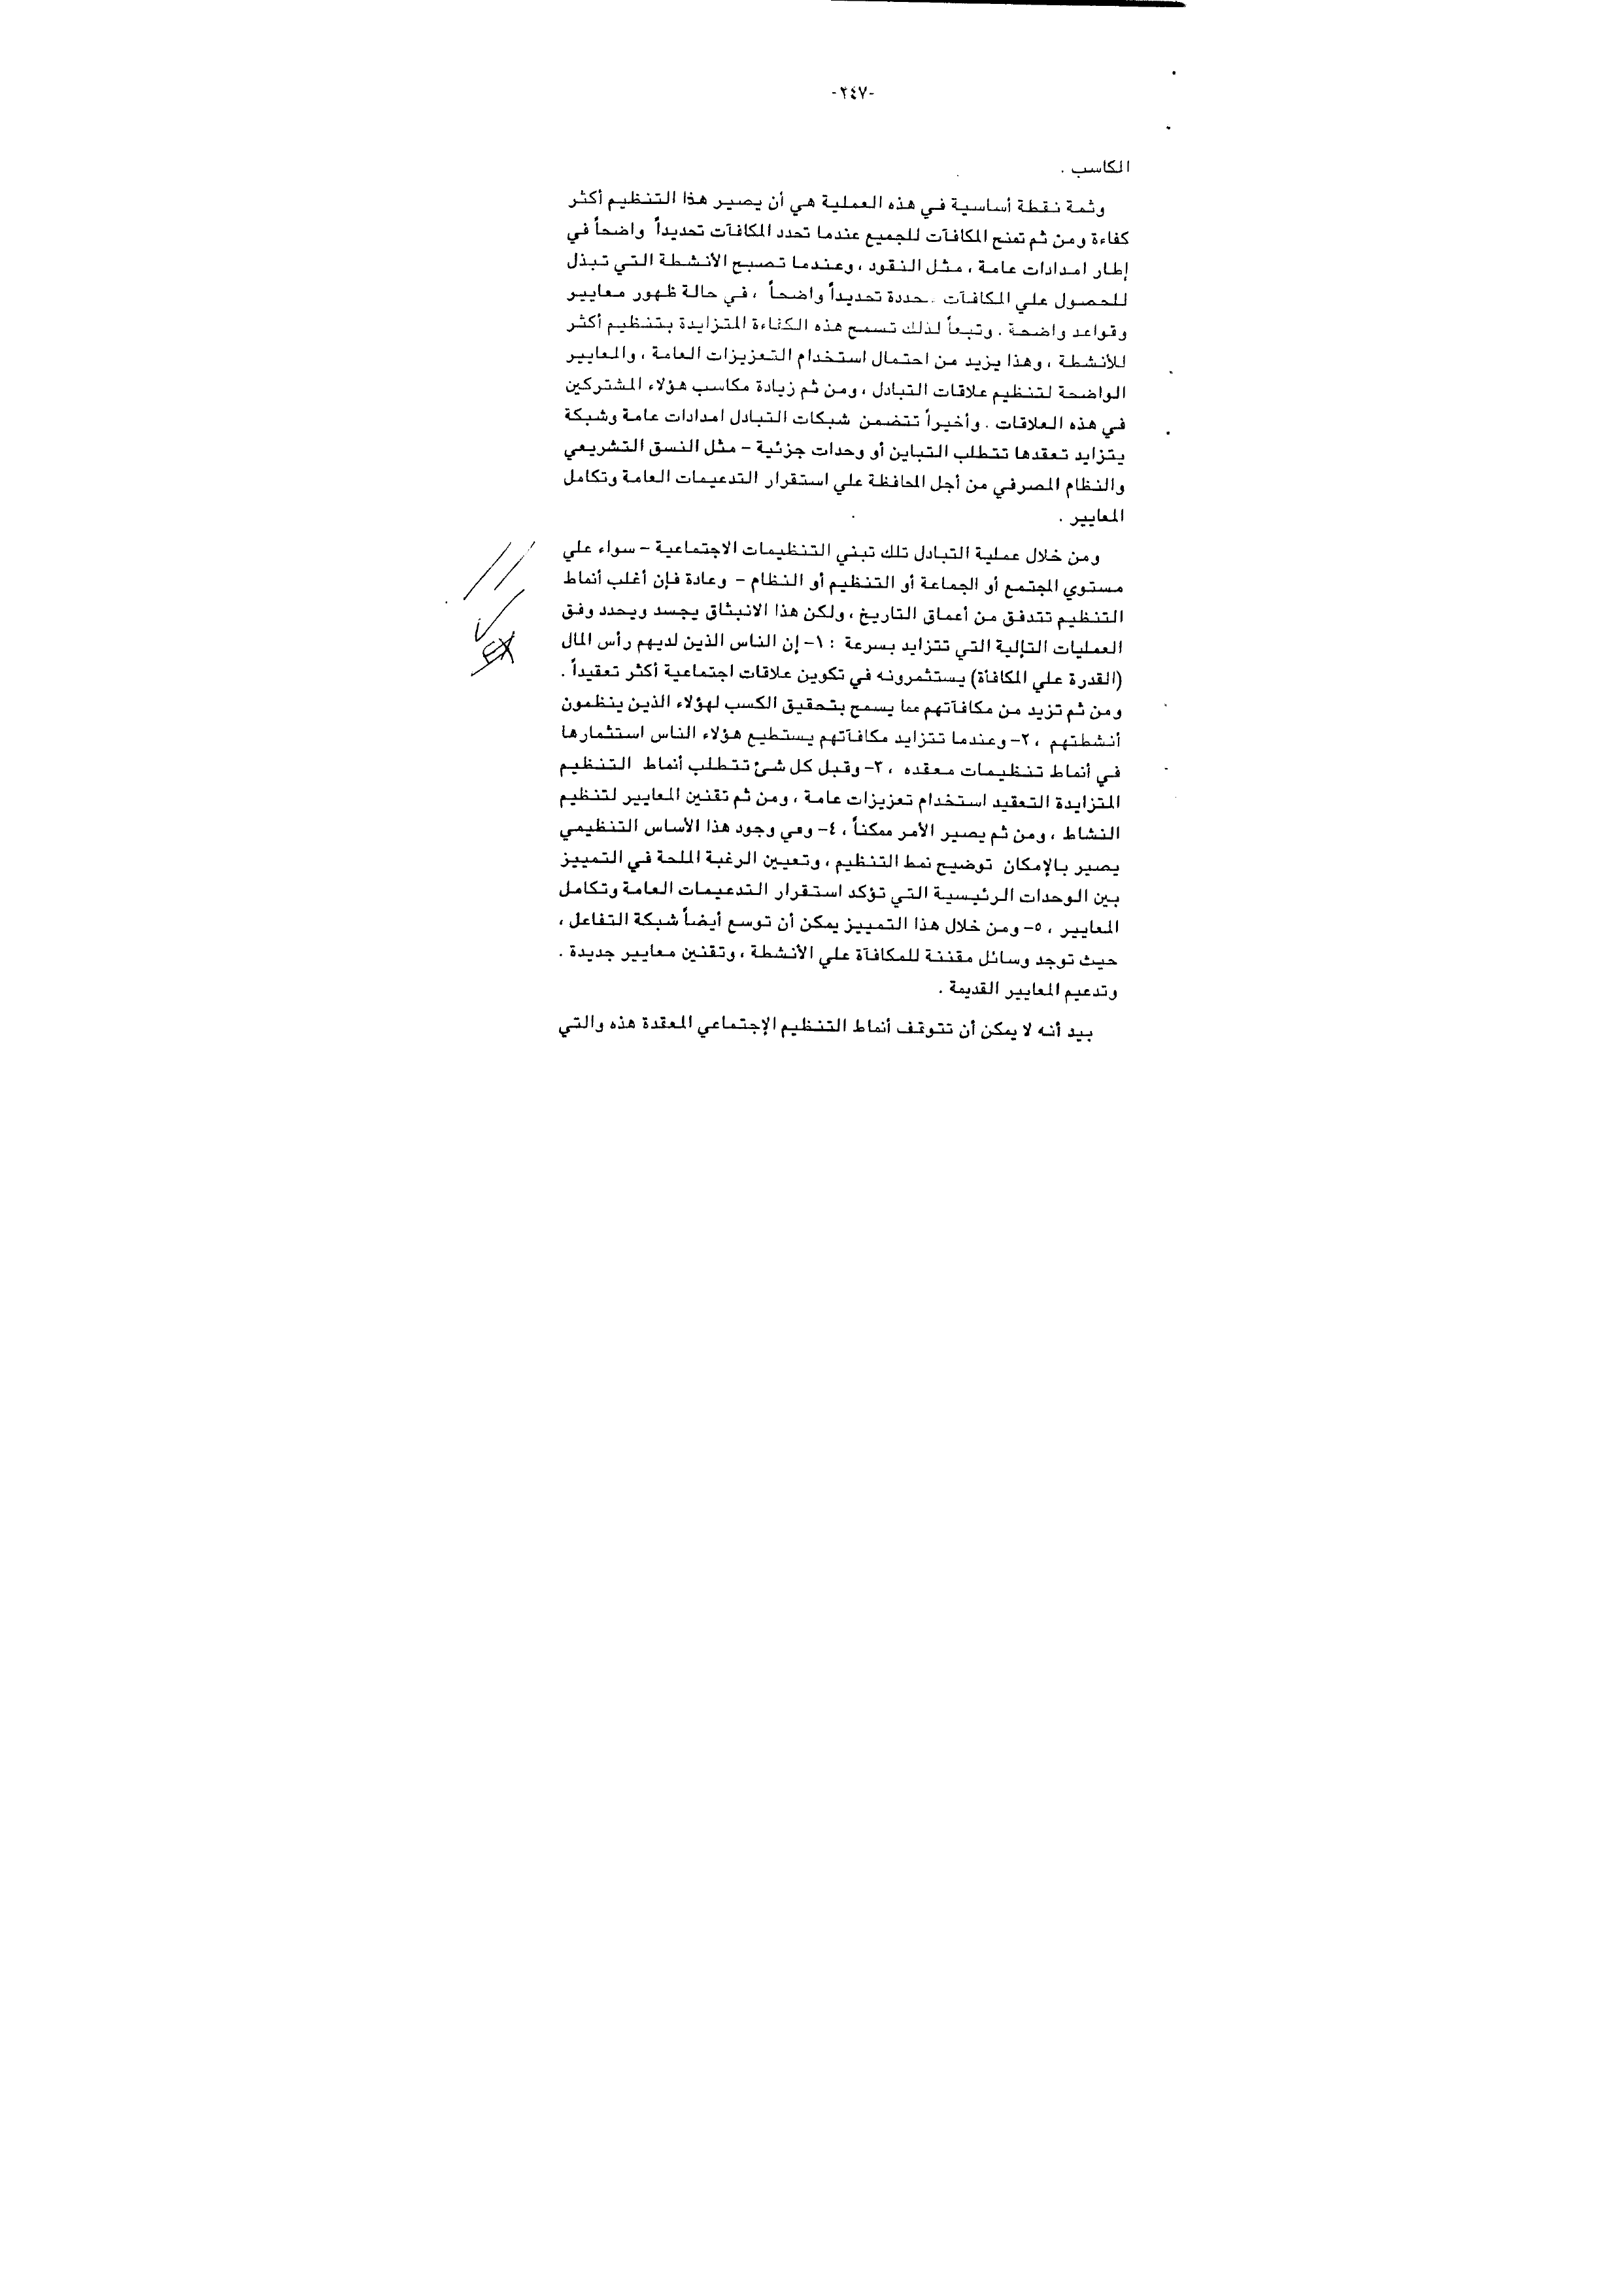 -٢٤٧-
الكاسب .
وثمة نقطة أساسية في هذه العملية هي أن يصير هذا التنظيم أكثر
كفاءة ومن ثم تمنح المكافآت للجميع عندما تحدد المكافآت تحديداً واضحاً في
إطار امدادات عامة ، مثل النقود ، وعندما تصبح الأنشطة التي تبذل
للحصول علي المكافآت حددة تحديداً واضحاً ، في حالة ظهور معايير
وقواعد واضحة . وتبعاً لذلك تسمح هذه الكفاءة المتزايدة بتنظيم أكثر
للأنشطة ، وهذا يزيد من احتمال استخدام التعزيزات العامة ، والمعايير
الواضحة لتنظيم علاقات التبادل ، ومن ثم زيادة مكاسب هؤلاء المشتركين
في هذه العلاقات . وأخيراً تتضمن شبكات التبادل امدادات عامة وشبكة
يتزايد تعقدها تتطلب التباين أو وحدات جزئية - مثل النسق التشريعي
والنظام المصرفي من أجل المحافظة علي استقرار التدعيمات العامة وتكامل
المعايير .
ومن خلال عملية التبادل تلك تبني التنظيمات الاجتماعية - سواء علي
مستوي المجتمع أو الجماعة أو التنظيم أو النظام - وعادة فإن أغلب أنماط
التنظيم تتدفق من أعماق التاريخ ، ولكن هذا الانبثاق يجسد ويحدد وفق
العمليات التالية التي تتزايد بسرعة : ١- إن الناس الذين لديهم رأس المال
(القدرة علي المكافأة) يستثمرونه في تكوين علاقات اجتماعية أكثر تعقيداً .
ومن ثم تزيد من مكافآتهم مما يسمح بتحقيق الكسب لهؤلاء الذين ينظمون
أنشطتهم ، ٢- وعندما تتزايد مكافآتهم يستطيع هؤلاء الناس استثمارها
في أنماط تنظيمات معقده ، ٣- وقبل كل شئ تتطلب أنماط التنظيم
المتزايدة التعقيد استخدام تعزيزات عامة ، ومن ثم تقنين المعايير لتنظيم
النشاط ، ومن ثم يصير الأمر ممكناً ، ٤- وفي وجود هذا الأساس التنظيمي
يصير بالإمكان توضيح نمط التنظيم ، وتعيين الرغبة الملحة في التمييز
بين الوحدات الرئيسية التي تؤكد استقرار التدعيمات العامة وتكامل
المعايير ، ٥- ومن خلال هذا التمييز يمكن أن توسع أيضاً شبكة التفاعل ،
حيث توجد وسائل مقننة للمكافآة علي الأنشطة ، وتقنين معايير جديدة .
وتدعيم المعايير القديمة .
بيد أنه لا يمكن أن تتوقف أنماط التنظيم الإجتماعي المعقدة هذه والتي